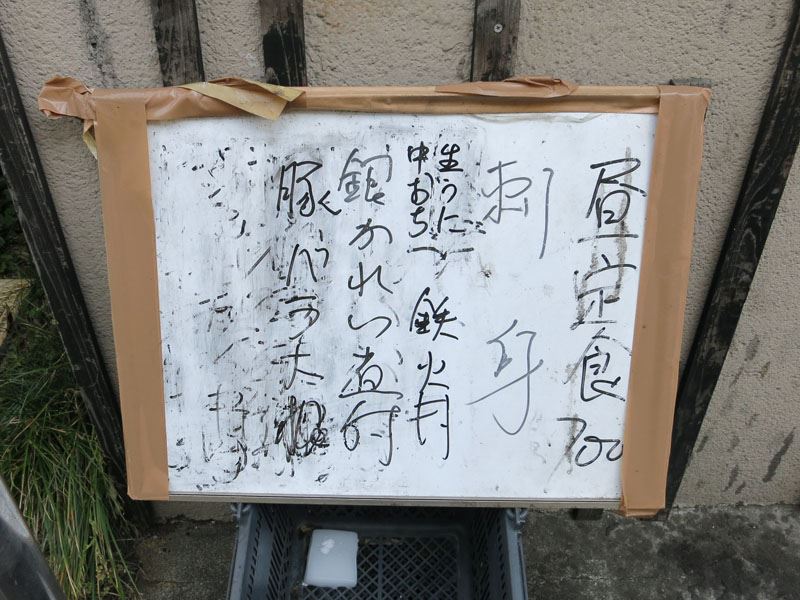 昼定食 700
刺身
生うに
中おち 鉄火丼
銀かれい煮付
豚バラ大根